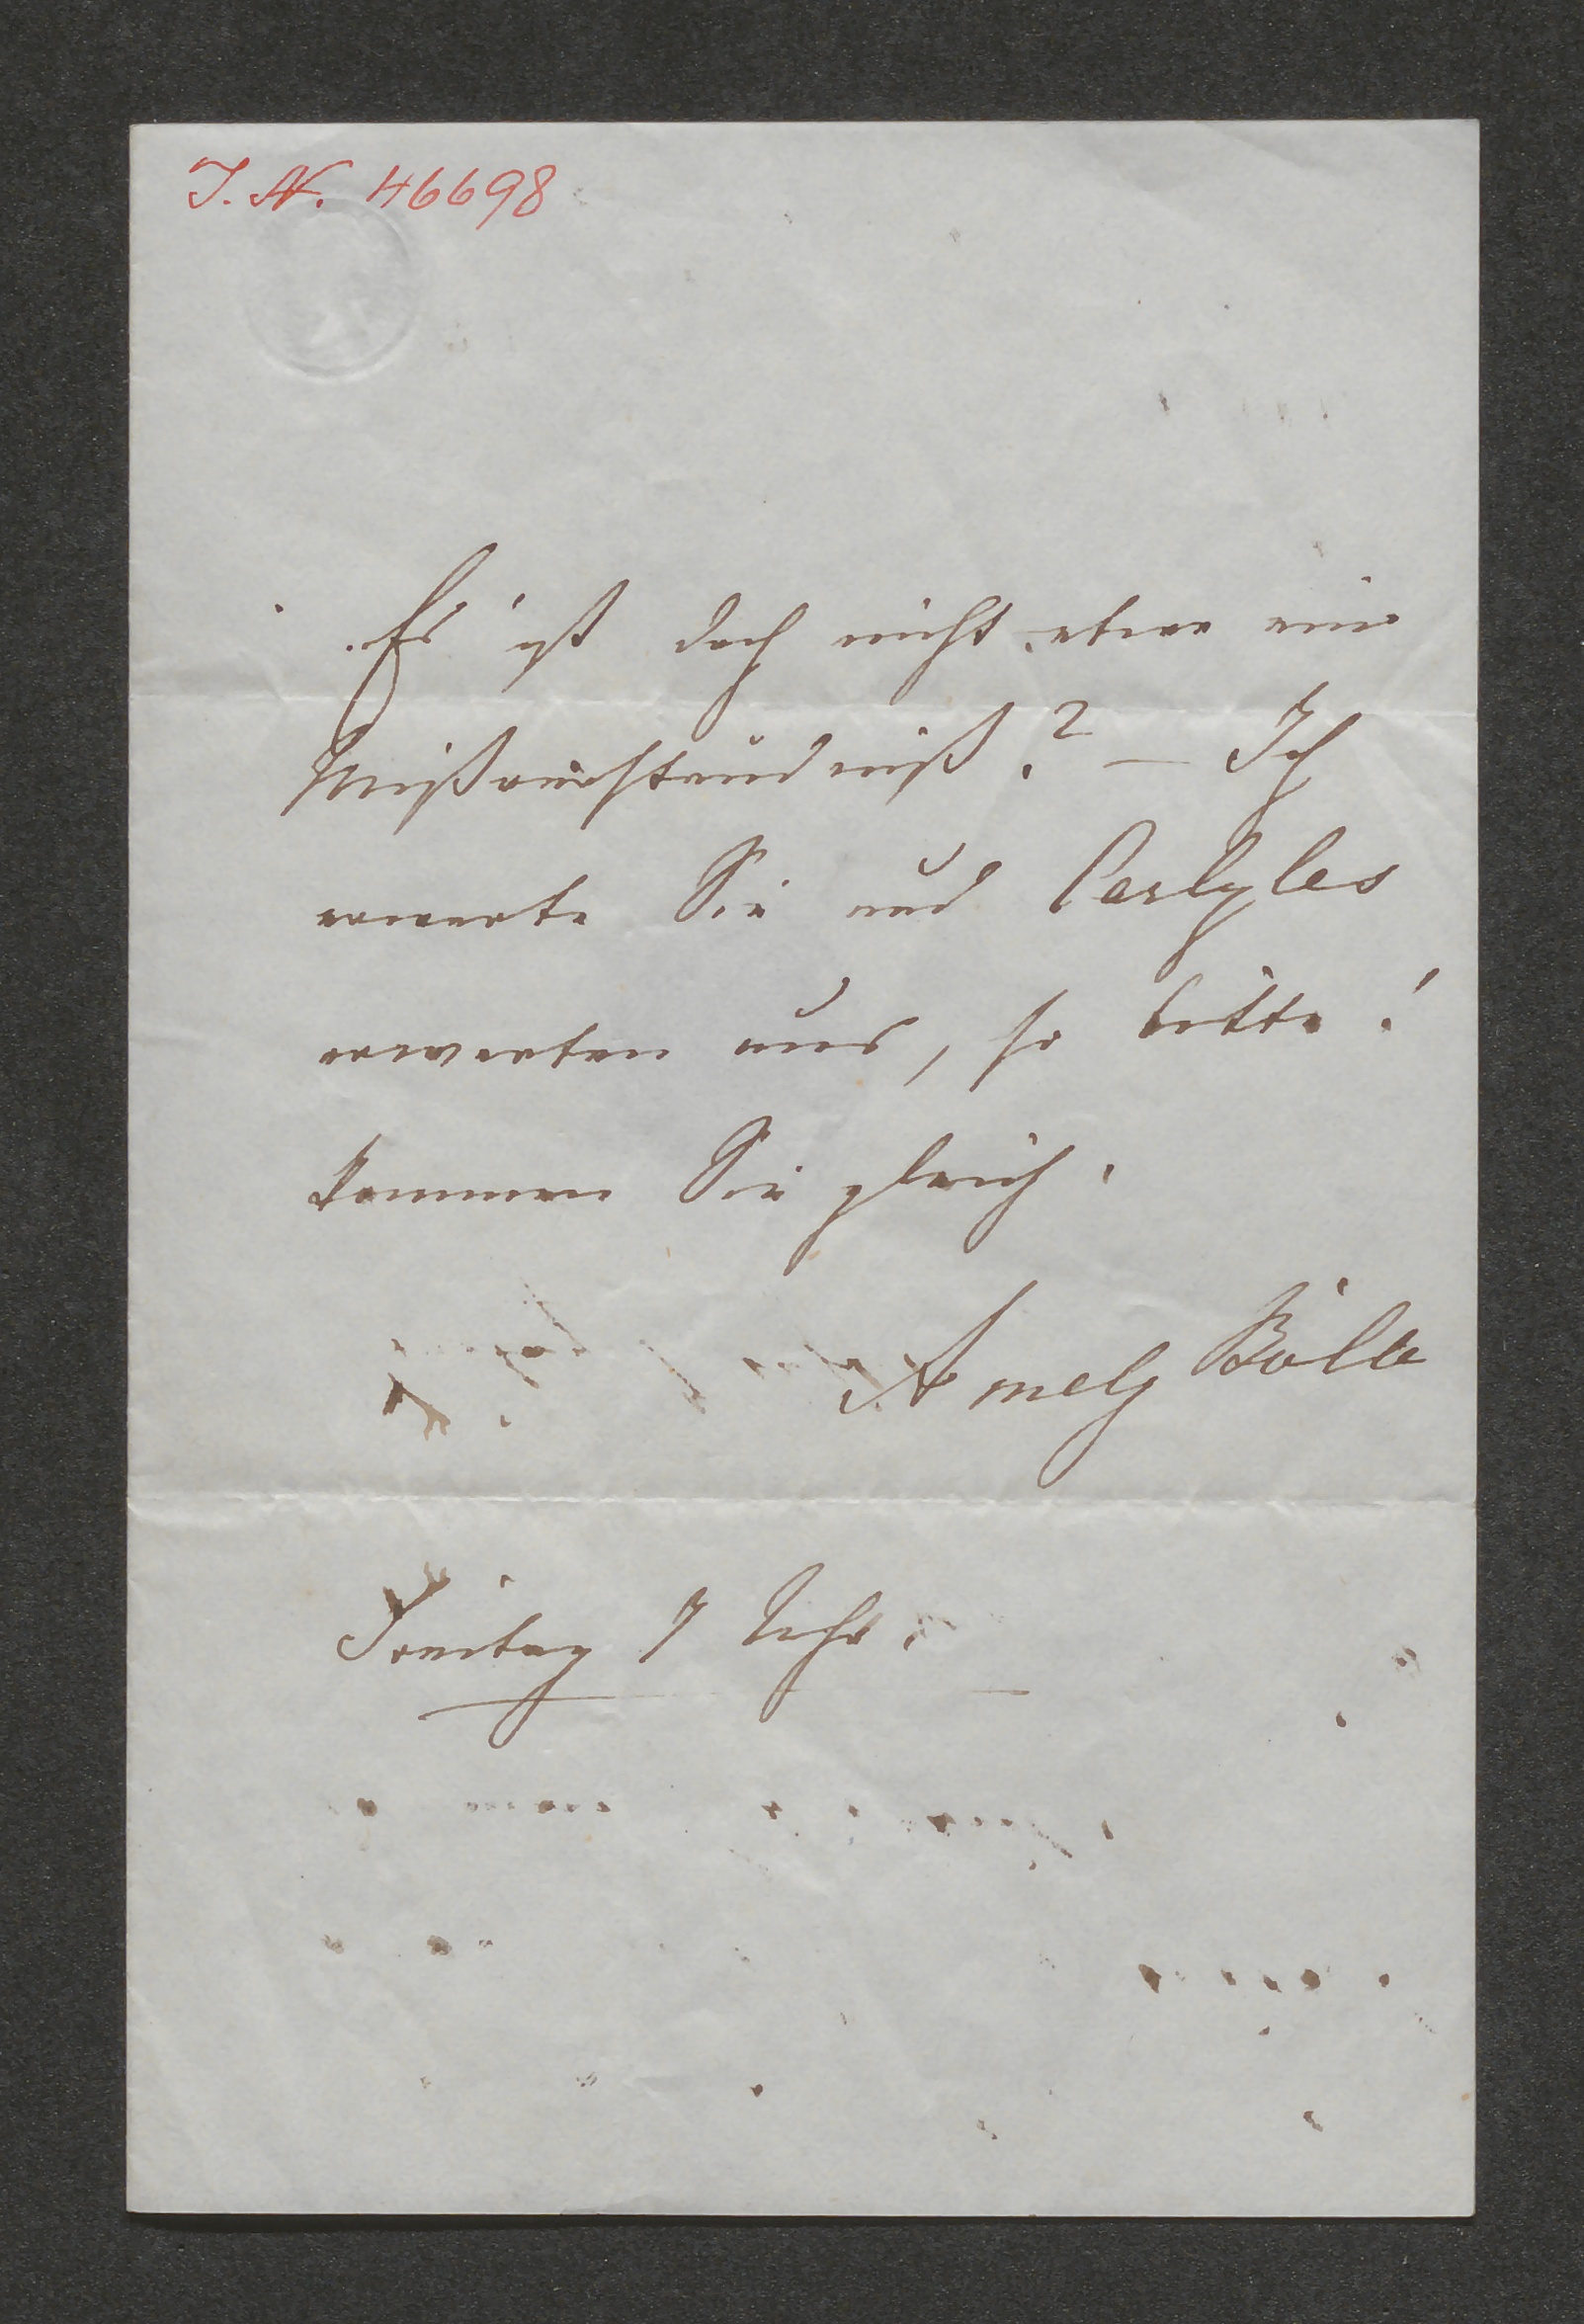 J. N. 46698
Es ist doch nicht etwa ein
Mißverständniß? — Ich
erwarte Sie und Carlyles
erwarten uns, so bitte!
kommen Sie gleich.
Amely Bölte
Freitag 7 Uhr.